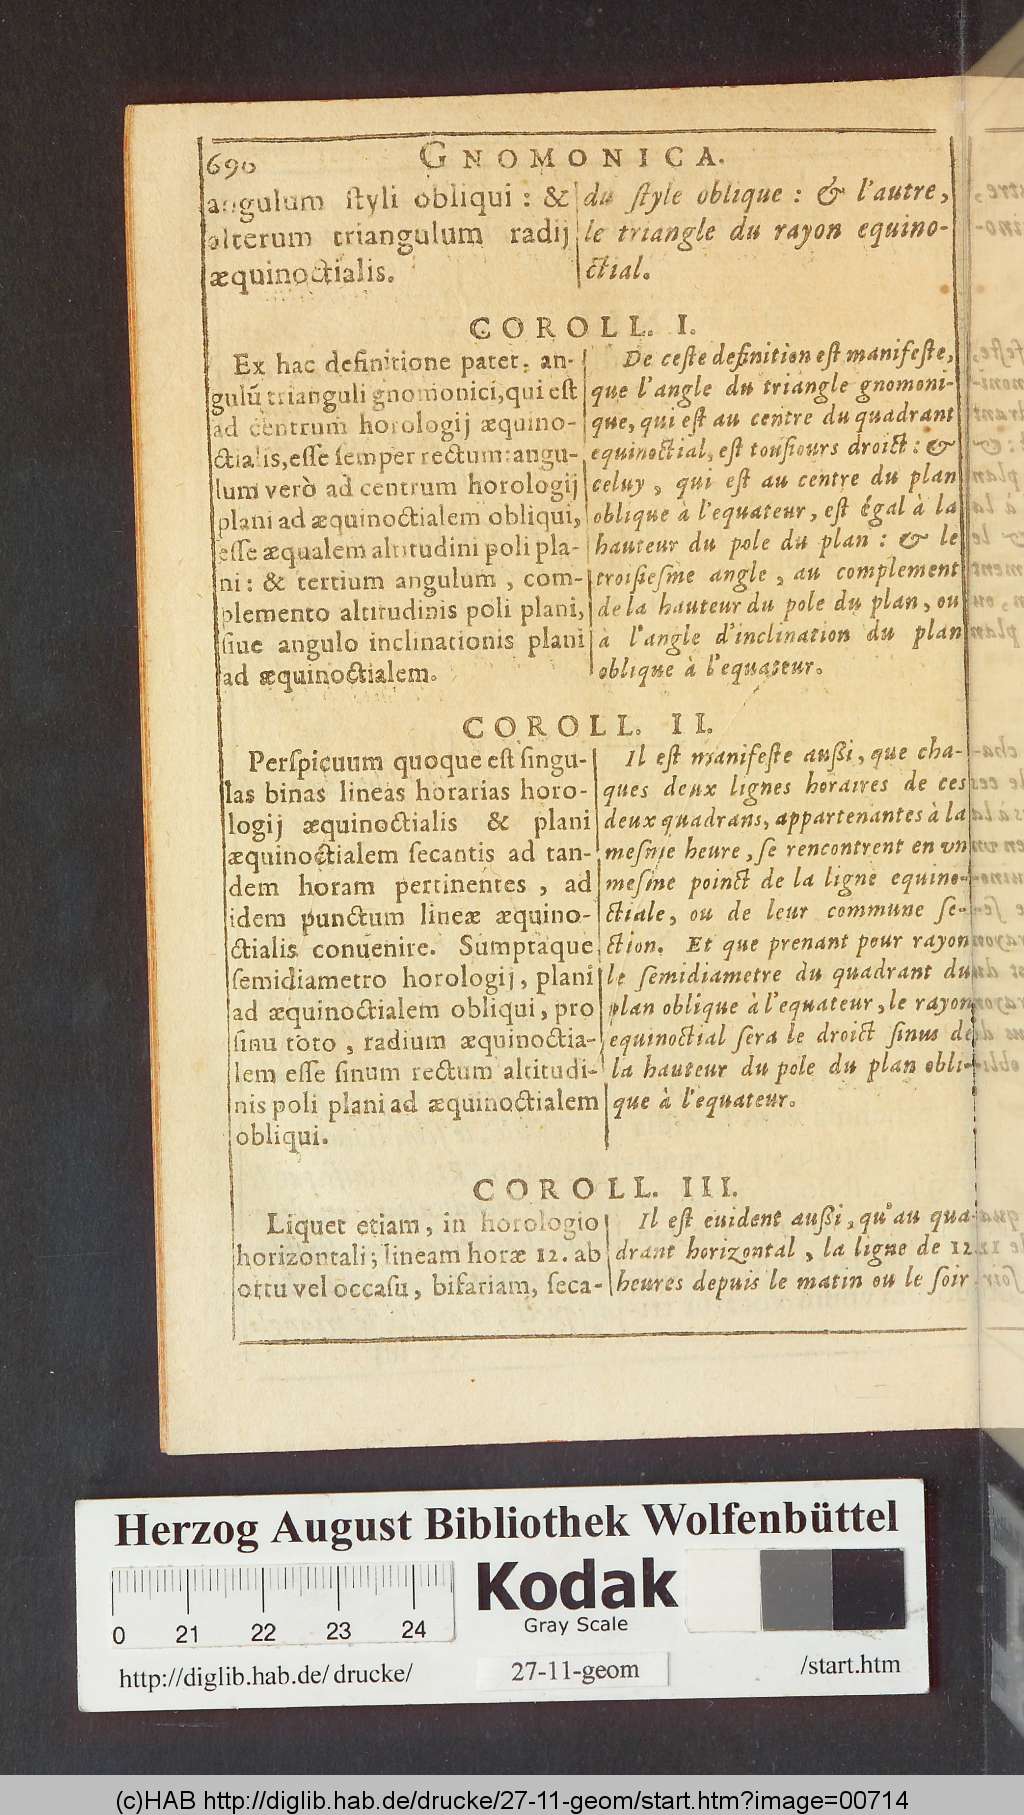 690
GNOMONICA.
angulum ſtyli obliqui : &
alterum triangulum radij
æquinoctialis.
du ſtyle oblique : & l'autre,
le triangle du rayon equino-
ctial.
COROLL. I.
Ex hac definitione patet, an-
gulũ trianguli gnomonici, qui eſt
ad centrum horologij æquino-
ctialis, eſſe ſemper rectum: angu-
lum verò ad centrum horologij
plani ad æquinoctialem obliqui,
eſſe æqualem altitudini poli pla-
ni: & tertium angulum, com-
plemento altitudinis poli plani,
ſiue angulo inclinationis plani
ad æquinoctialem.
De ceſte definition eſt manifeſte,
que l'angle du triangle gnomoni-
que, qui eſt au centre du quadrant
equinoctial, eſt touſiours droict: &
celuy, qui eſt au centre du plan
oblique à l'equateur, eſt égal à la
hauteur du pole du plan : & le
troiſieſme angle, au complement
de la hauteur du pole du plan, ou
à l'angle d'inclination du plan
oblique à l'equateur.
COROLL. II.
Perſpicuum quoque eſt ſingu-
las binas lineas horarias horo-
logij æquinoctialis & plani
æquinoctialem ſecantis ad tan-
dem horam pertinentes, ad
idem punctum lineæ æquino-
ctialis conuenire. Sumptaque
ſemidiametro horologij, plani
ad æquinoctialem obliqui, pro
ſinu toto, radium æquinoctia-
lem eſſe ſinum rectum altitudi-
nis poli plani ad æquinoctialem
obliqui.
Il eſt manifeſte außi, que cha-
ques deux lignes horaires de ces
deux quadrans, appartenantes à la
meſme heure, ſe rencontrent en vn
meſme poinct de la ligne equino-
ctiale, ou de leur commune ſe-
ction. Et que prenant pour rayon
le ſemidiametre du quadrant du
plan oblique à l'equateur, le rayon
equinoctial ſera le droict ſinus de
la hauteur du pole du plan obli-
que à l'equateur.
COROLL. III.
Liquet etiam, in horologio
horizontali; lineam horæ 12. ab
ortu vel occaſu, bifariam, ſeca-
Il eſt euident außi, qu'au qua-
drant horizontal, la ligne de 12
heures depuis le matin ou le ſoir
Herzog August Bibliothek Wolfenbüttel
0 21 22 23 24
Kodak
Gray Scale
http://diglib.hab.de/ drucke/
27-11-geom
/start.htm
(c)HAB http://diglib.hab.de/drucke/27-11-geom/start.htm?image=00714